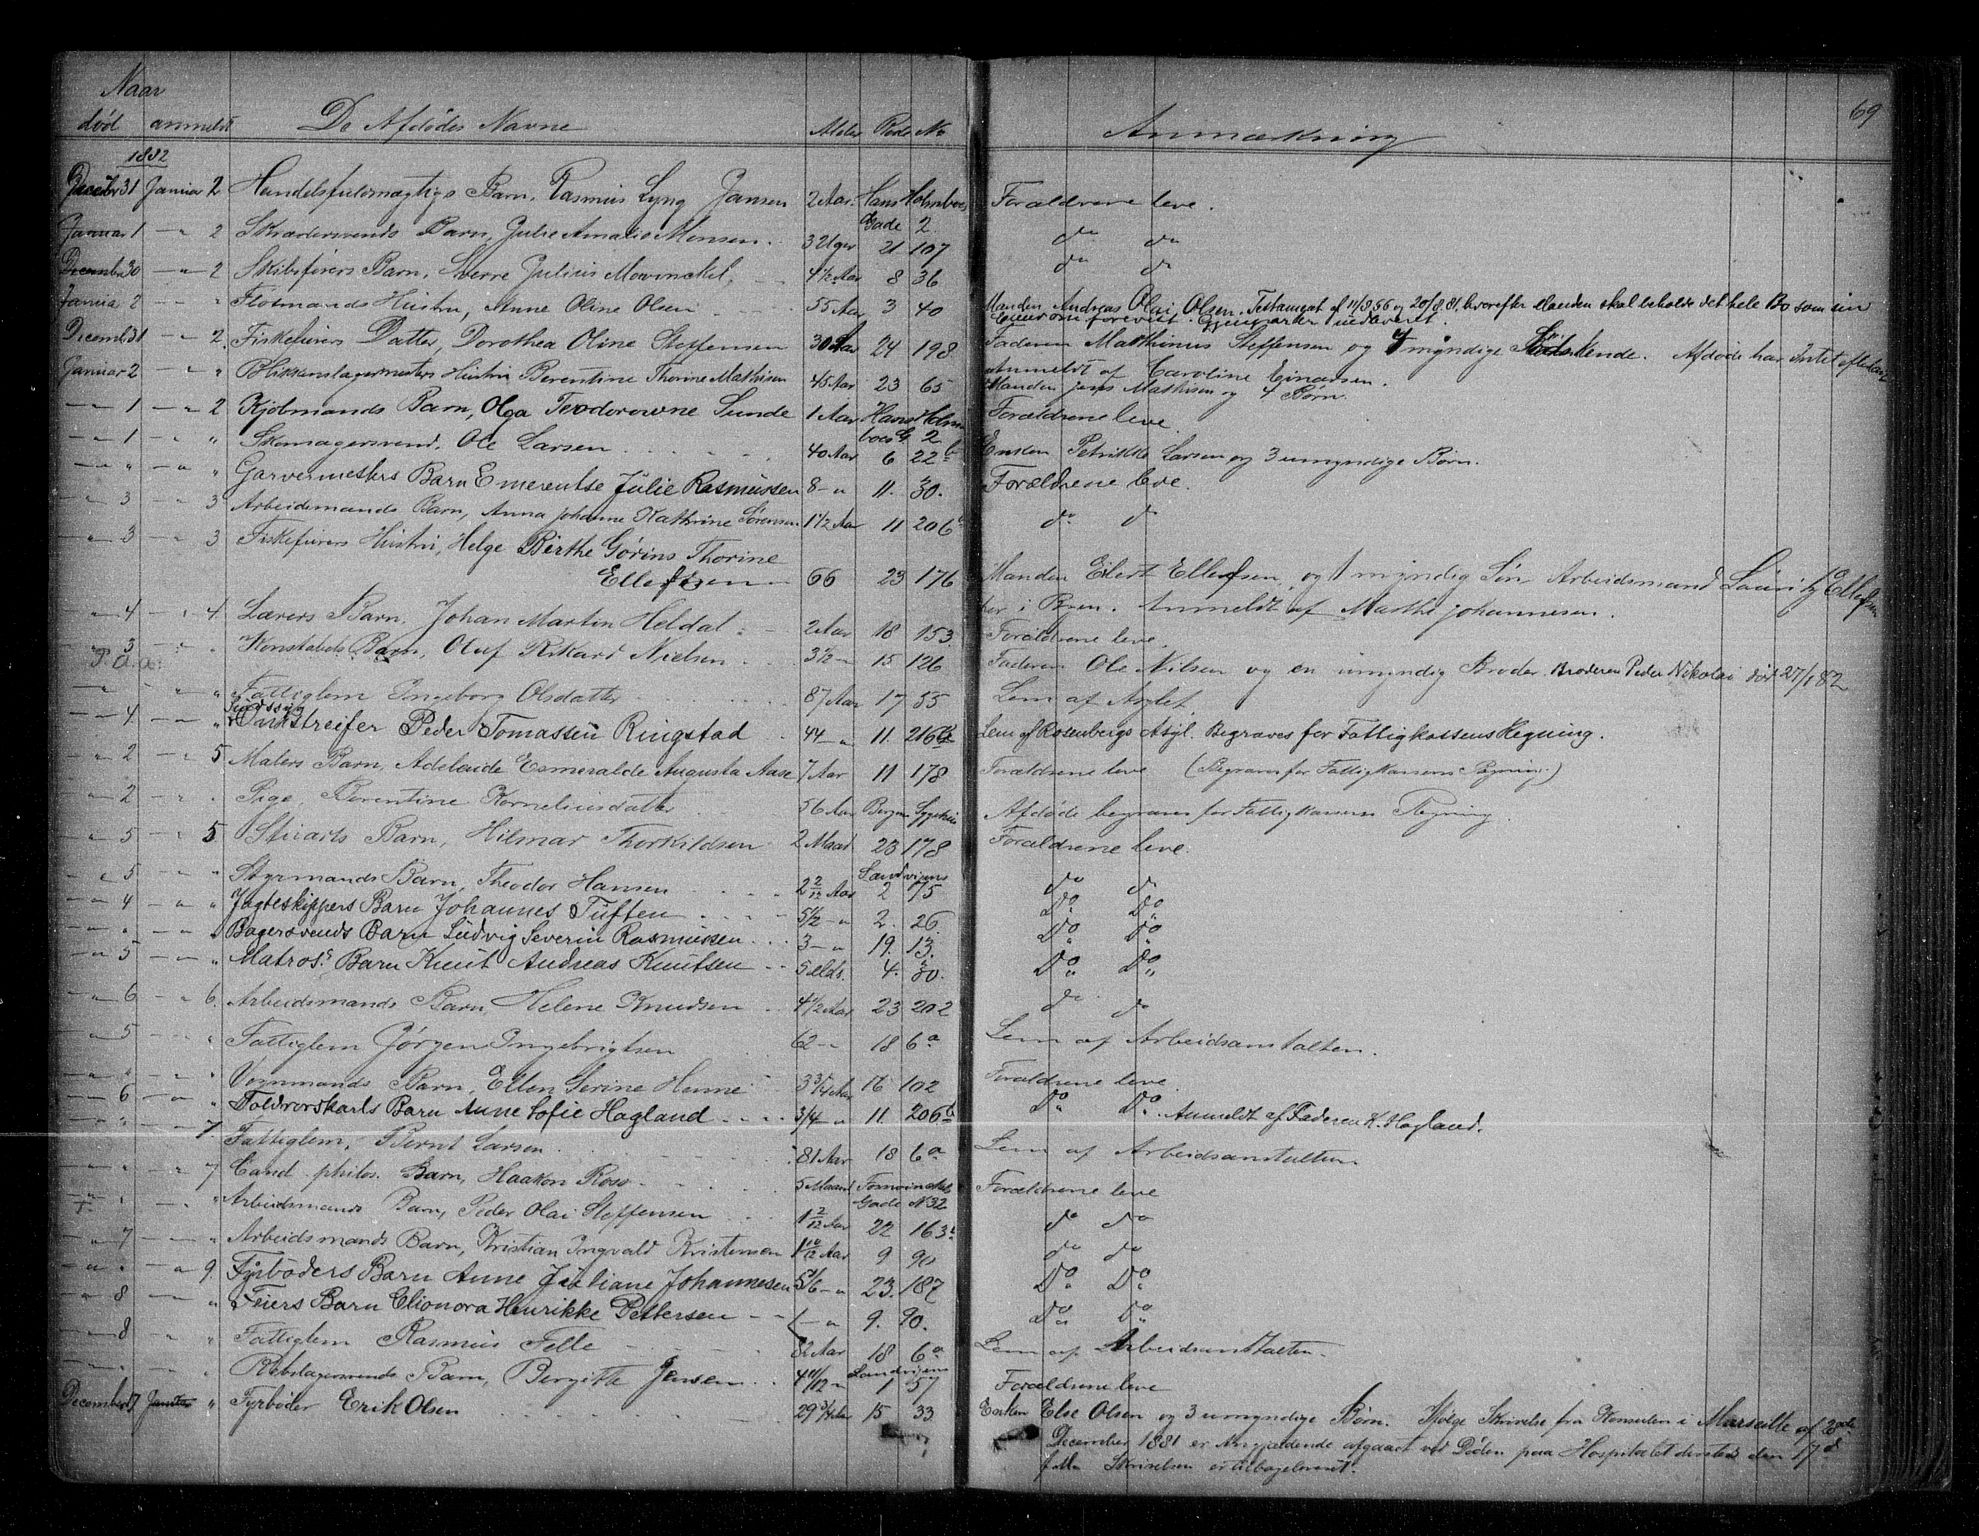 69
Naar
død anmeldt De Afdødes Navne Alder Rode No Anmærkning
1882
Decbr 31 Januar 2 Handelsfuldmægtigs Barn, Rasmus Lyng Jansen 2 Aar. Hans Holmboes Gade 2 Forældrene leve.
Januar 1 " 2 Skræddersvends Barn, Julie Amalie Monsen 3 Uger 21 107 do do
December 30 " 2 Skibsførers Barn, Sverre Julius Mowinckel 4½ Aar 8 36 do do
Januar 2 " " Flosmands Hustru, Anne Oline Olsen 55 Aar 3 40 Manden Andreas Olai Olsen. Testament af 11/8 56 og 20/8 81, hvorefter Manden skal beholde det hele Bo som sin
Eiendom forevist. Gjenparter indleveret.
Decembr 31 " 2 Fiskeførers Datter, Dorothea Oline Steffensen 30 Aar 24 198 Faderen Matthinus Steffensen og 4 myndige Södskende. Afdøde har Intet efterladt
Anmeldt af Caroline Einarsen.
Januar 2 " " Blikkenslagermesters Hustru Berentine Thorine Mathisen 45 Aar 23 65 Manden Jens Mathisen og 4 Børn.
" 1 " 2 Kjøbmands Barn, Olga Teodorowne Sunde 1 Aar Hans Holmboes G. 2 Forældrene leve.
" 1 " " Skomagersvend, Ole Larsen 40 Aar 6 22b Enken Petrikke Larsen og 3 umyndige Børn.
" " " " Garvermesters Barn Emerentse Julie Rasmussen 8 " 11. 30. Forældrene leve.
" 3 " 3 Arbeidsmands Barn, Anna Johanne Kathrine Sørensen 1½ Aar 11 206 do do
" 3 " 3 Fiskeførers Hustru, Helge Birthe Gørine Thorine
Ellefsen 66 23 176 Manden Eilert Ellefsen, og 1 myndig Søn Arbeidsmand Lauritz Ellefsen
her i Byen. Anmeldt af Marthe Johannesen.
" 4 " 4 Lærers Barn, Johan Martin Heldal 2 Aar 18 153 Forældrene leve.
" 3 " " Konstabels Barn, Oluf Rikard Nielsen 3½ " 15 126 Faderen Ole Nilsen og en umyndig Broder. Broderen Peder Nikolai död 27/1 82
P. a. a.
" " " Fattiglem Ingeborg Olsdatter 87 Aar 17 55 Lem af Asylet
Sindssyg
" 4 " " Peder Tomassen Ringstad 44 " 11. 216 Lem af Rosenbergs Asyl. Begraves for Fattigkassens Regning.
" 2 " 5 Malers Barn, Adelaide Esmeralde Augusta Aase 7 Aar 11 178 Forældrene leve (Begraves for Fattigkassens Regning.)
" 2 " " Pige, Berentine Korneliusdatter 56 Aar Bergens Sygehus Afdøde begraves for Fattigkassens Regning.
" 5 " 5 Stuarts Barn, Hilmar Thorkildsen 2 Maad 23 178 Forældrene leve.
" 5 " " Styrmands Barn, Theodor Hansen 2 2/12 Aar Sandvigens 2 75 do do
" 4 " " Jagteskippers Barn Johannes Tuften 5½ " 2. 26. Do Do
" " " " Bagersvends Barn Ludvig Severin Rasmussen 3 " 19. 13. Do Do
" 5 " " Matros's Barn Knut Andreas Knutsen 5 Mdr. 4. 30. Do Do
" 6 " 6 Arbeidsmands Barn, Helene Knudsen 4½ Aar 23 202 do do
" 5 " " Fattiglem Jørgen Ingebrigtsen 62 " 18 6a Lem af Arbeidsanstalten.
" " " " Vognmands Barn, Ellen Serine Henne 3¾ Aar 16 102 Forældrene leve.
" 6 " " Toldrorskarls Barn Anne Sofie Hagland 3/4 " 11. 206b Do Do. Anmeldt af Faderen K. Hagland.
" " 7. Fattiglem, Bernt Larsen 81 Aar 18 6a Lem af Arbeidsanstalten
" " " 7 Cand. philos. Barn, Haakon Ross 5 Maaned Gade No 32 Forældrene leve
" " " Arbeidsmands Barn, Peder Olai Steffensen 1 2/12 Aar 22 163 do do
" 7 " " Arbeidsmands Barn, Kristian Ingvald Kristensen 1 10/12 Aar 9 90 do do
" " " 9. Fyrbøders Barn Anne Juliane Johannesen 5/6 " 23. 187 Do Do
" 8 " " Feiers Barn Elionora Henrikke Pettersen " 9. 90. Do Do
" 8 " " Fattiglem Rasmus Felle 82 Aar 18 6a Lem af Arbeidsanstalten.
" " " Rebslagersvends Barn, Bergitte Jensen 4 11/12 " Sandvigens 1 57 Forældrene leve
December 17 Januar " Fyrbøder Erik Olsen 29 ¾ Aar 15 33 Enken Else Olsen og 3 umyndige Børn. Ifølge Skrivelse fra Konsulen i Marseille af 20de
December 1881 er Angjældende afgaaet ved Døden paa Hospitalet dersteds den 17d
Skrivelsen er tilbageleveret.